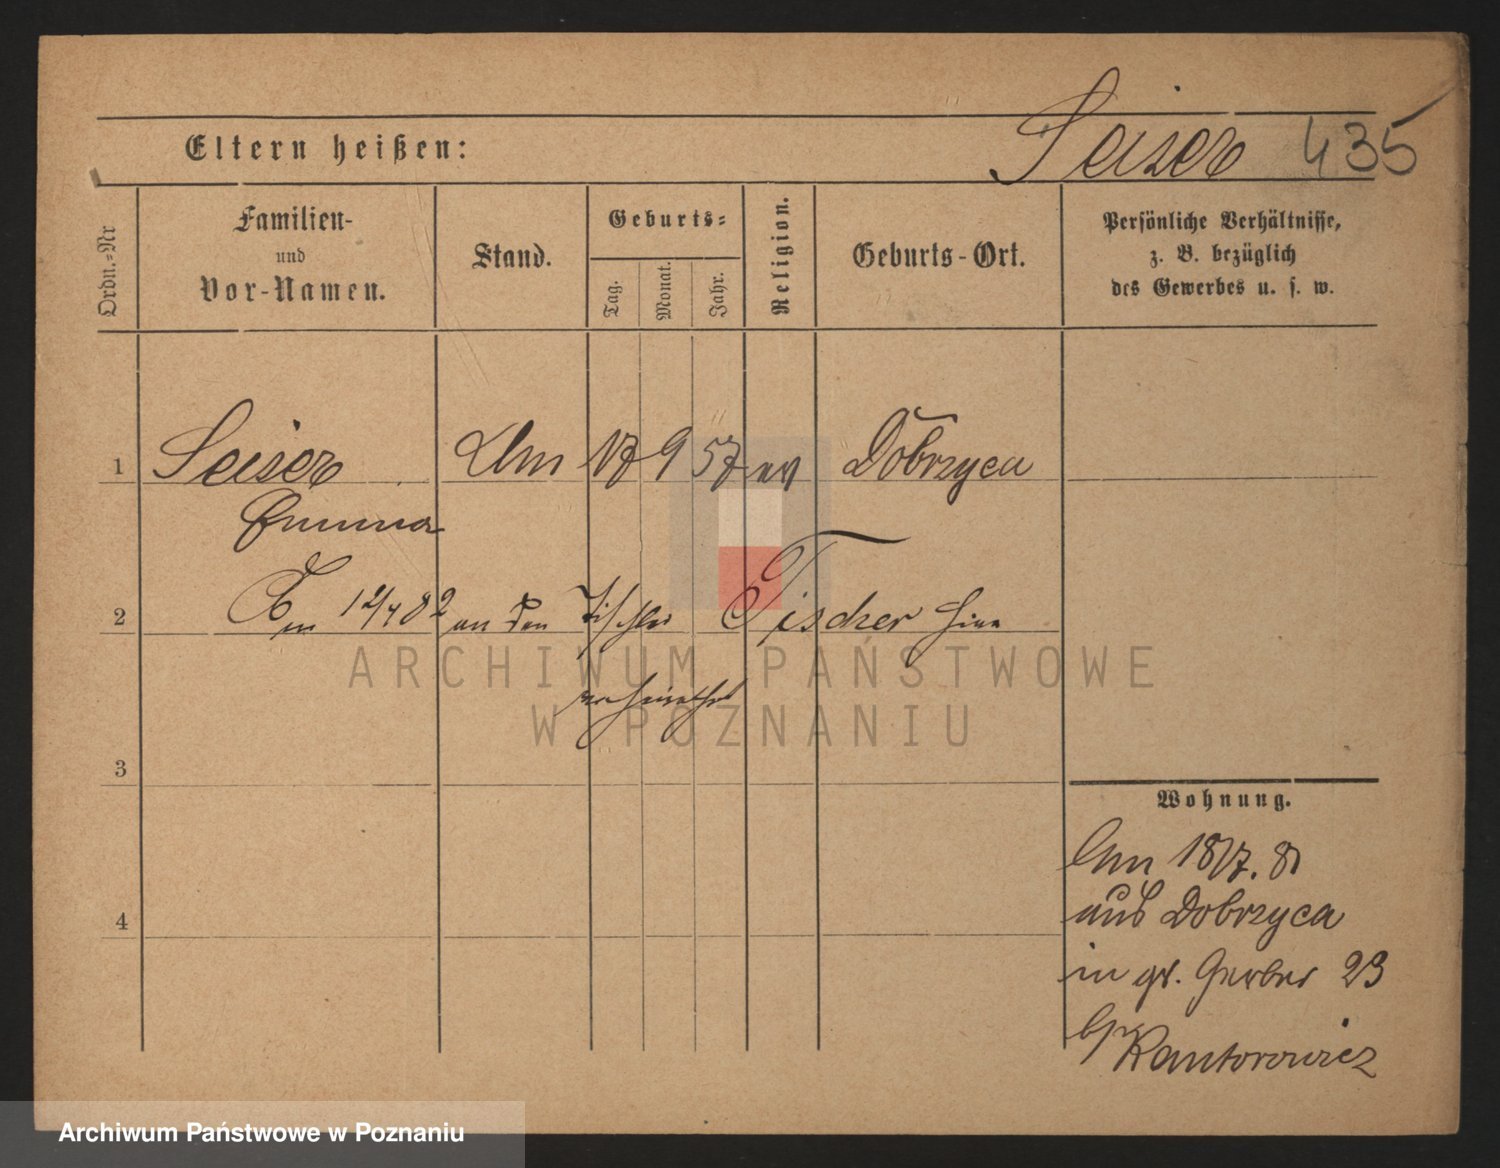 Eltern heißen: Seiser 435
Ordn.-Nr
Familien-
und
Vor-Namen.
Stand.
Geburts-
Tag. Monat. Jahr.
Religion.
Geburts-Ort.
Persönliche Verhältnisse,
z. B. bezüglich
des Gewerbes u. s. w.
1 Seiser 17 9 57 ev Dobrzyca
Emma
2 an den Tischler Tischer hier
verheirathet
3
4
Wohnung.
Am 18/7. 81
aus Dobrzyca
in gr. Gerber 23
Kantorowicz
ARCHIWUM PAŃSTWOWE
W POZNANIU
Archiwum Państwowe w Poznaniu